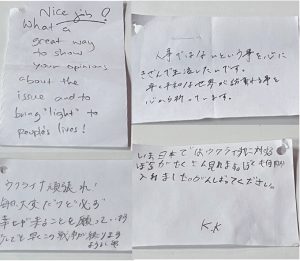 Nice job!
What a
great way
to show
your opinions
about the
issue and to
bring "light" to
people's lives!
人事ではないという事を心に
きざんで生活したいです。
早く平和な世界が訪れる事を
心から祈っています。
ウクライナ頑張れ!
毎日大変だけど必ず
幸せが来ることを願っています
戦争が終りますように
いま日本ではウクライナに対する
ぼきんがたくさん見れます。
入れました。がんばってください。
K.K